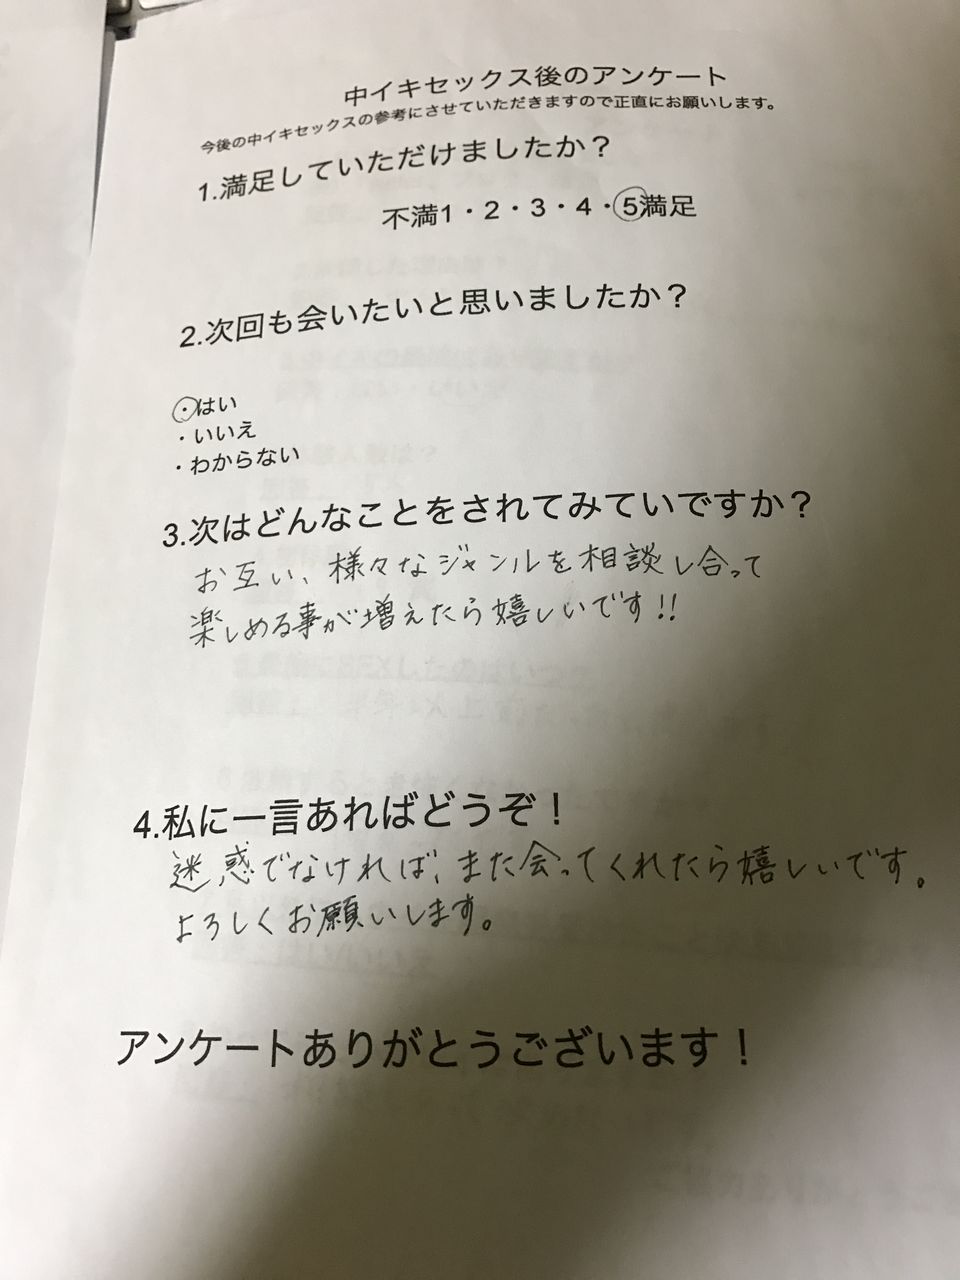 中イキセックス後のアンケート
今後の中イキセックスの参考にさせていただきますので正直にお願いします。
1.満足していただけましたか？
不満1・2・3・4・5満足
2.次回も会いたいと思いましたか？
・はい
・いいえ
・わからない
3.次はどんなことをされてみていですか？
お互い、様々なジャンルを相談し合って
楽しめる事が増えたら嬉しいです!!
4.私に一言あればどうぞ！
迷惑でなければ、また会ってくれたら嬉しいです。
よろしくお願いします。
アンケートありがとうございます！